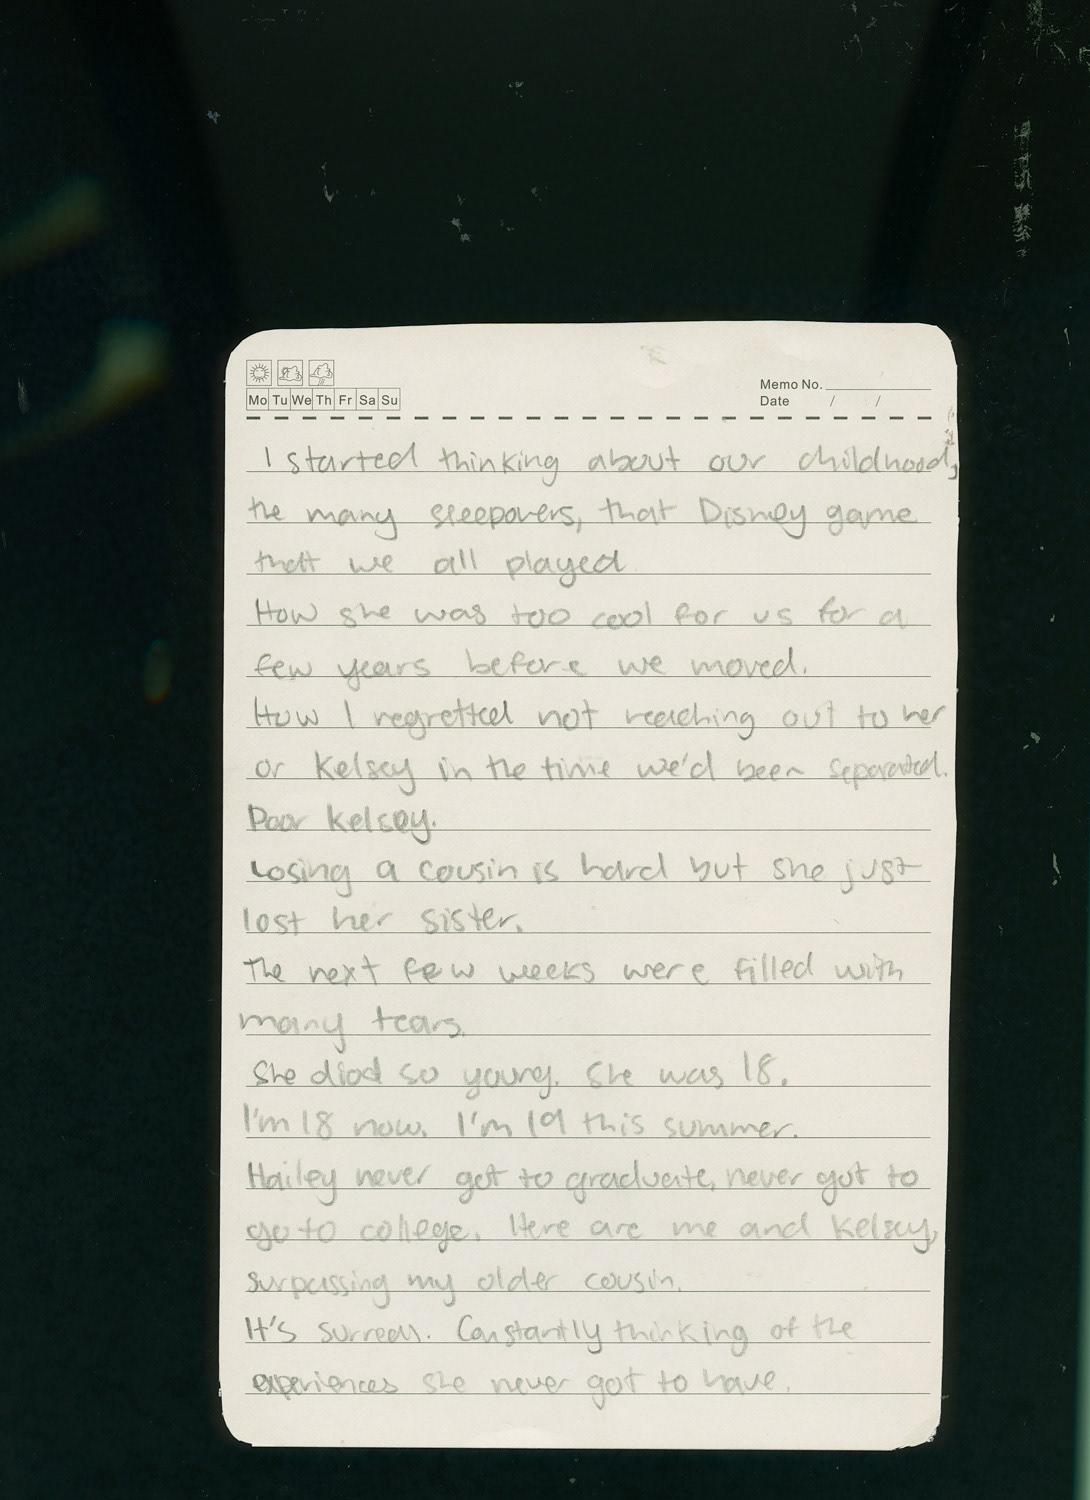 Mo Tu We Th Fr Sa Su
Memo No.
Date / /
I started thinking about our childhood,
the many sleepovers, that Disney game
that we all played
How she was too cool for us for a
few years before we moved.
How I regretted not reaching out to her
or Kelsey in the time we'd been separated.
Poor Kelsey.
Losing a cousin is hard but she just
lost her sister.
The next few weeks were filled with
many tears.
She died so young. She was 18.
I'm 18 now. I'm 19 this summer.
Hailey never got to graduate, never got to
go to college. Here are me and Kelsey,
surpassing my older cousin.
It's surreal. Constantly thinking of the
experiences she never got to have.